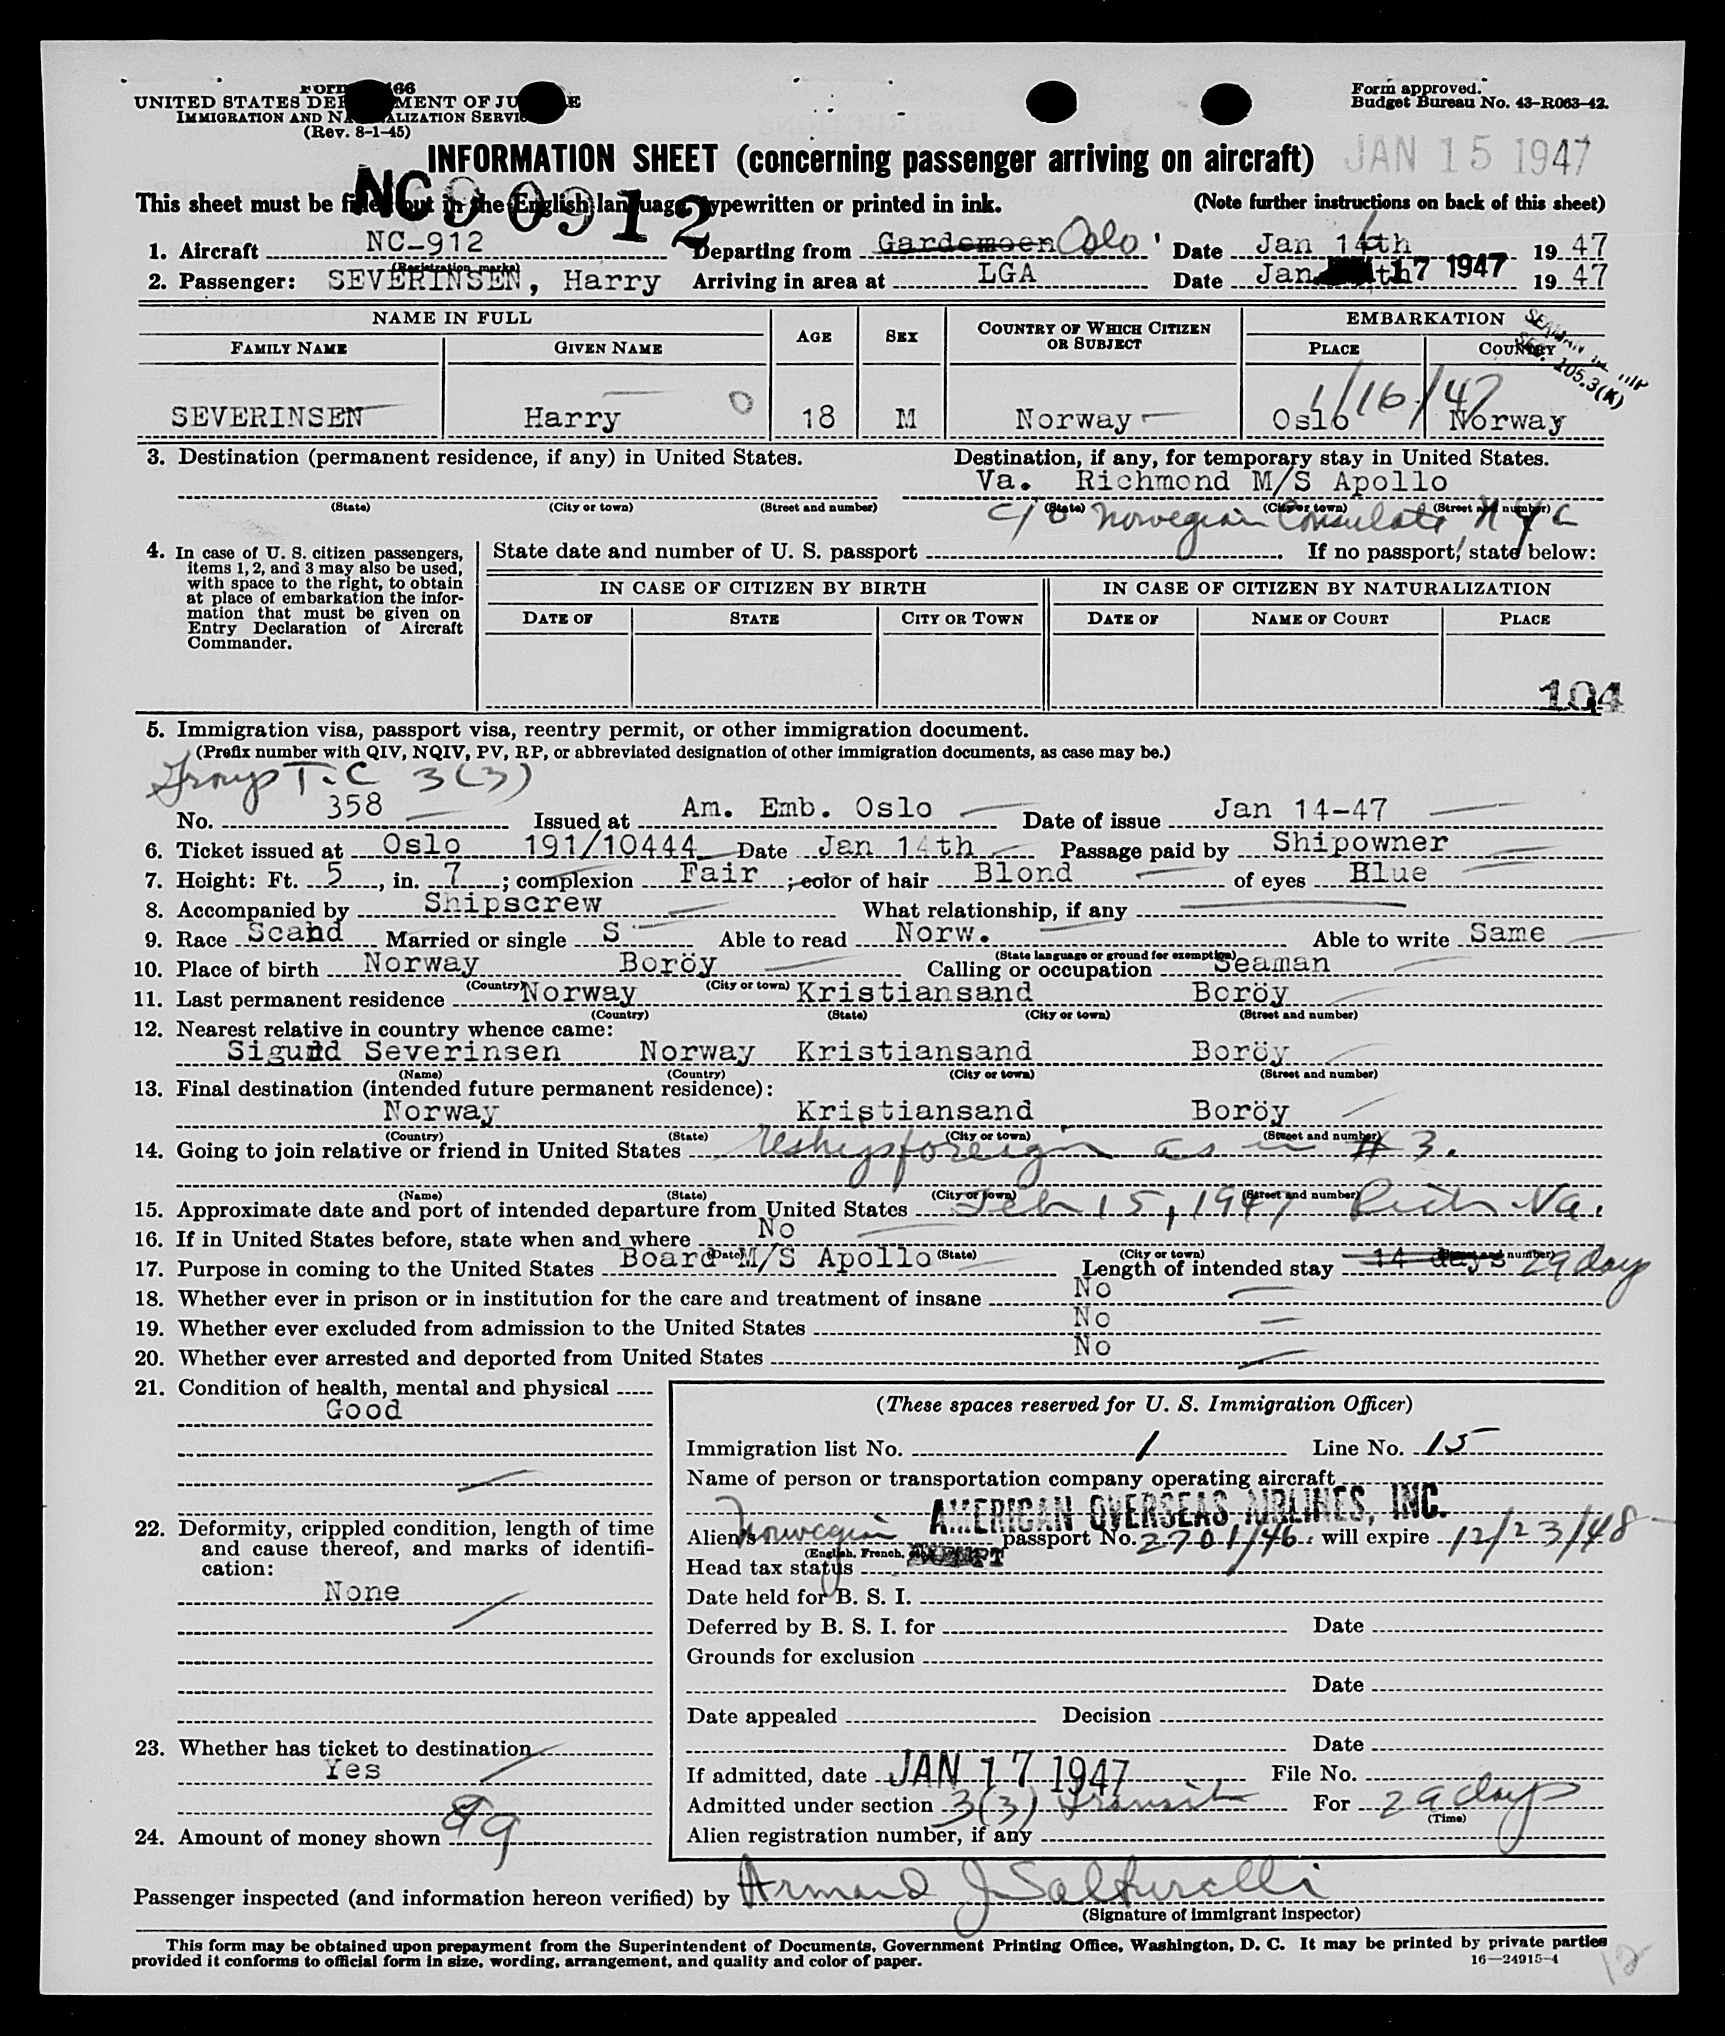 UNITED STATES DEPARTMENT OF JUSTICE
IMMIGRATION AND NATURALIZATION SERVICE
(Rev. 8-1-45)
Form approved.
Budget Bureau No. 43-R063-42.
INFORMATION SHEET (concerning passenger arriving on aircraft) JAN 15 1947
NC 90912
This sheet must be filled out in the English language, typewritten or printed in ink. (Note further instructions on back of this sheet)
1. Aircraft NC-912 Departing from Gardemoen Oslo Date Jan 16th 1947
(Registration marks)
2. Passenger: SEVERINSEN, Harry Arriving in area at LGA Date Jan 17 1947 1947
NAME IN FULL AGE SEX COUNTRY OF WHICH CITIZEN OR SUBJECT EMBARKATION
FAMILY NAME GIVEN NAME PLACE COUNTRY
SEAMAN
SEC. 105.3(K)
1/16/47
SEVERINSEN Harry 18 M Norway Oslo Norway
3. Destination (permanent residence, if any) in United States. Destination, if any, for temporary stay in United States.
Va. Richmond M/S Apollo
(State) (City or town) (Street and number) (State) (City or town) (Street and number)
c/o Norwegian Consulate, NYC
4. In case of U. S. citizen passengers, items 1, 2, and 3 may also be used, with space to the right, to obtain at place of embarkation the information that must be given on Entry Declaration of Aircraft Commander.
State date and number of U. S. passport If no passport, state below:
IN CASE OF CITIZEN BY BIRTH IN CASE OF CITIZEN BY NATURALIZATION
DATE OF STATE CITY OR TOWN DATE OF NAME OF COURT PLACE
104
5. Immigration visa, passport visa, reentry permit, or other immigration document.
(Prefix number with QIV, NQIV, PV, RP, or abbreviated designation of other immigration documents, as case may be.)
Group T.C 3(3)
No. 358 Issued at Am. Emb. Oslo Date of issue Jan 14-47
6. Ticket issued at Oslo 191/10444 Date Jan 14th Passage paid by Shipowner
7. Height: Ft. 5, in. 7; complexion Fair; color of hair Blond of eyes Blue
8. Accompanied by Shipscrew What relationship, if any
9. Race Scand Married or single S Able to read Norw. Able to write Same
(State language or ground for exemption)
10. Place of birth Norway Boröy Calling or occupation Seaman
(Country) (City or town)
11. Last permanent residence Norway Kristiansand Boröy
(Country) (State) (City or town) (Street and number)
12. Nearest relative in country whence came:
Sigurd Severinsen Norway Kristiansand Boröy
(Name) (Country) (City or town) (Street and number)
13. Final destination (intended future permanent residence):
Norway Kristiansand Boröy
(Country) (State) (City or town) (Street and number)
14. Going to join relative or friend in United States reship foreign as in # 3.
(Name) (State) (City or town) (Street and number)
15. Approximate date and port of intended departure from United States Feb 15, 1947 Rich Va.
16. If in United States before, state when and where No
(Date) (State) (City or town) (Street and number)
17. Purpose in coming to the United States Board M/S Apollo Length of intended stay 14 days 29 days
18. Whether ever in prison or in institution for the care and treatment of insane No
19. Whether ever excluded from admission to the United States No
20. Whether ever arrested and deported from United States No
21. Condition of health, mental and physical
Good
22. Deformity, crippled condition, length of time and cause thereof, and marks of identification:
None
23. Whether has ticket to destination
Yes
24. Amount of money shown
(These spaces reserved for U. S. Immigration Officer)
Immigration list No. 1 Line No. 15
Name of person or transportation company operating aircraft
AMERICAN OVERSEAS AIRLINES, INC.
Alien's Norwegian passport No. 2701/46 will expire 12/23/48
(English, French, etc.)
Head tax status EXEMPT
Date held for B. S. I.
Deferred by B. S. I. for Date
Grounds for exclusion
Date
Date appealed Decision
Date
If admitted, date JAN 17 1947 File No.
Admitted under section 3(3) Transit For 29 days
(Time)
Alien registration number, if any
Passenger inspected (and information hereon verified) by Armand J Salturelli
(Signature of immigrant inspector)
This form may be obtained upon prepayment from the Superintendent of Documents, Government Printing Office, Washington, D. C. It may be printed by private parties
provided it conforms to official form in size, wording, arrangement, and quality and color of paper. 16—24915-4
12